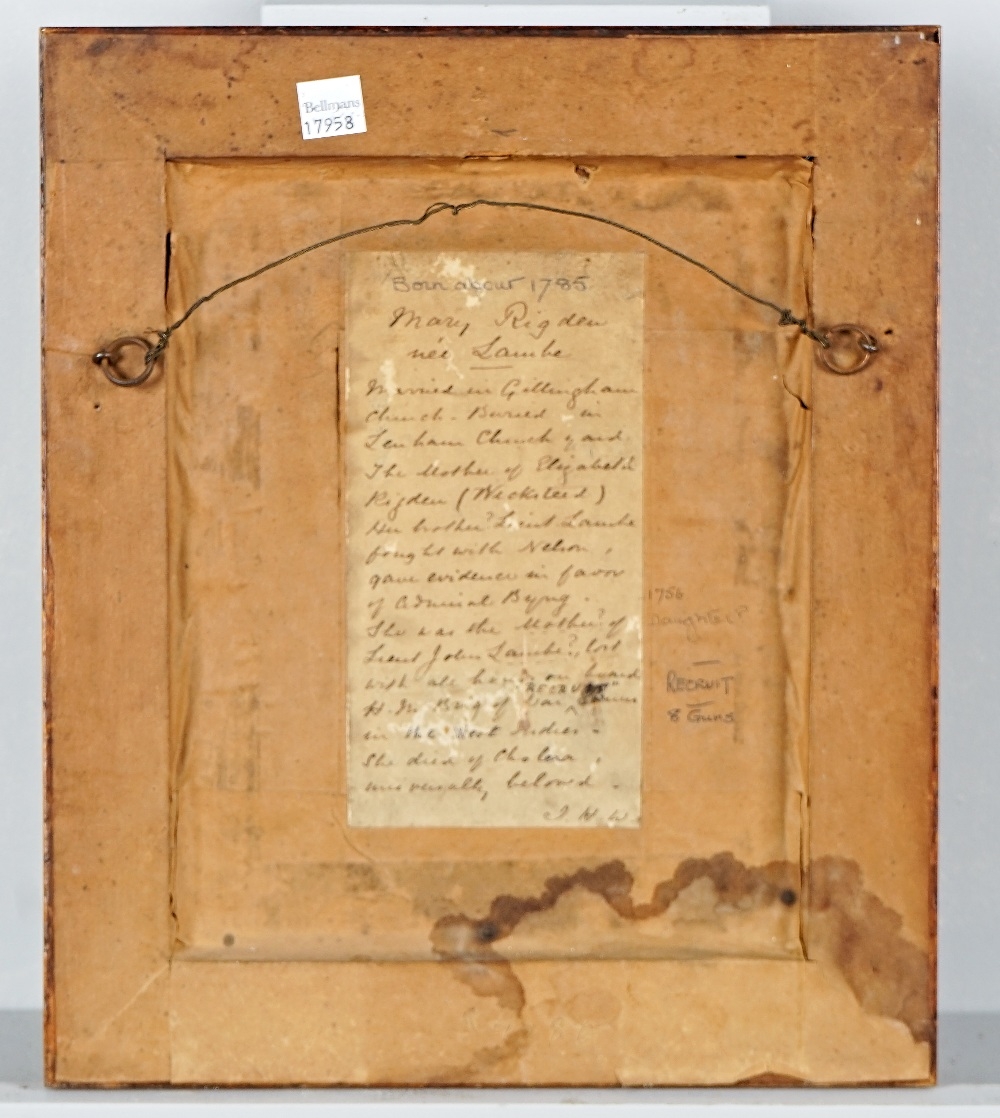 Bellmans
17958
Born about 1785
Mary Rigden
née Lambe
Married in Gillingham
Church - Buried in
Lenham Church yard.
The Mother of Elizabeth
Rigden (Wecksteed)
Her brother? Lieut Lambe
fought with Nelson,
gave evidence in favor
of Admiral Byng.
1756
She was the Mother? of
Daughter?
Lieut John Lambe?, lost
with all hands on board
RECRUIT
H.M. Brig of War
in the West Indies -
She died of Cholera,
universally beloved -
J. H. W.
RECRUIT
8 Guns